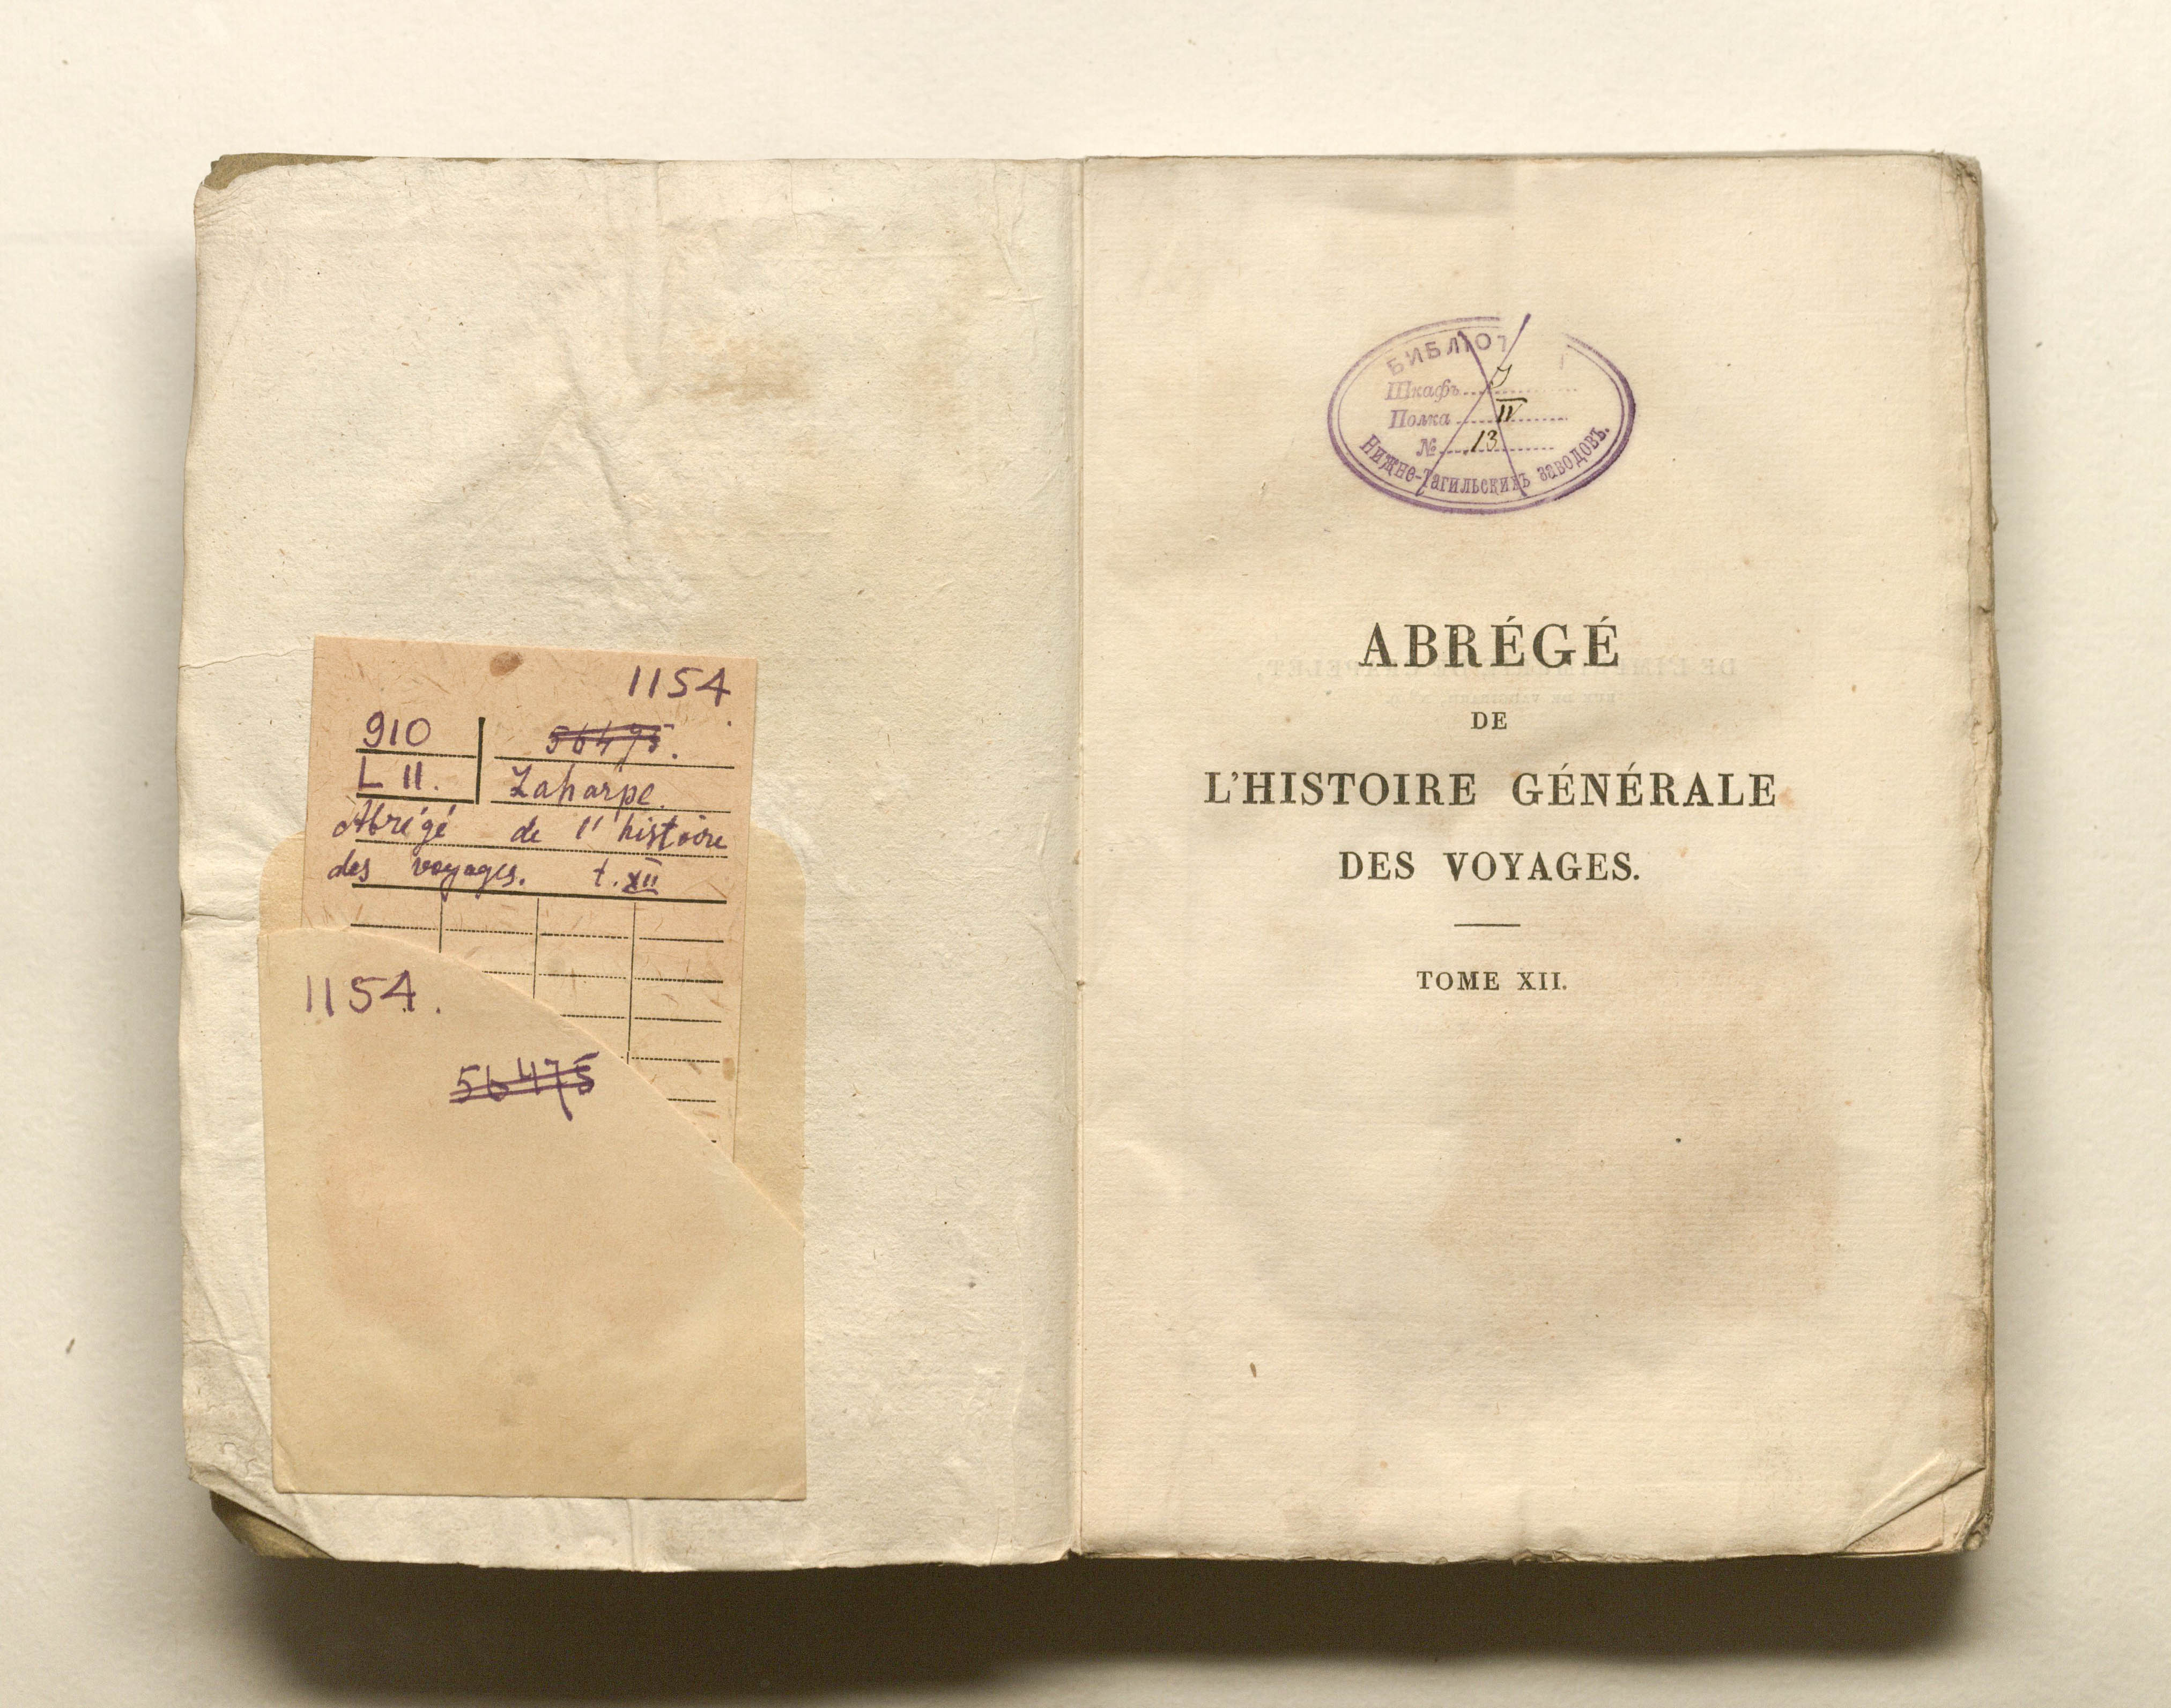 1154
910
56475.
L 11.
Laharpe.
Abrégé de l'histoire
des voyages. t. XII
1154.
56475
БИБЛІОТ
Шкафъ
Полка IV
№ 13
Нижне-Тагильскихъ заводовъ.
ABRÉGÉ
DE
L'HISTOIRE GÉNÉRALE
DES VOYAGES.
TOME XII.